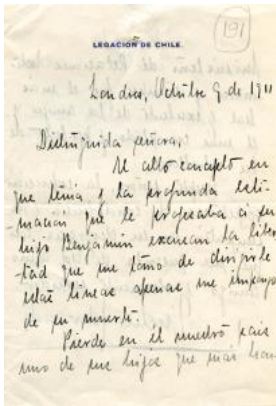 191
LEGACION DE CHILE.
Londres, Octubre 9 de 1911
Distinguida señora,
El alto concepto en
que tenia y la profunda esti-
macion que le profesaba á su
hijo Benjamin excusan la liber-
tad que me tomo de dirijirle
estas lineas apenas me impongo
de su muerte.
Pierde en él nuestro pais
uno de sus hijos que mas